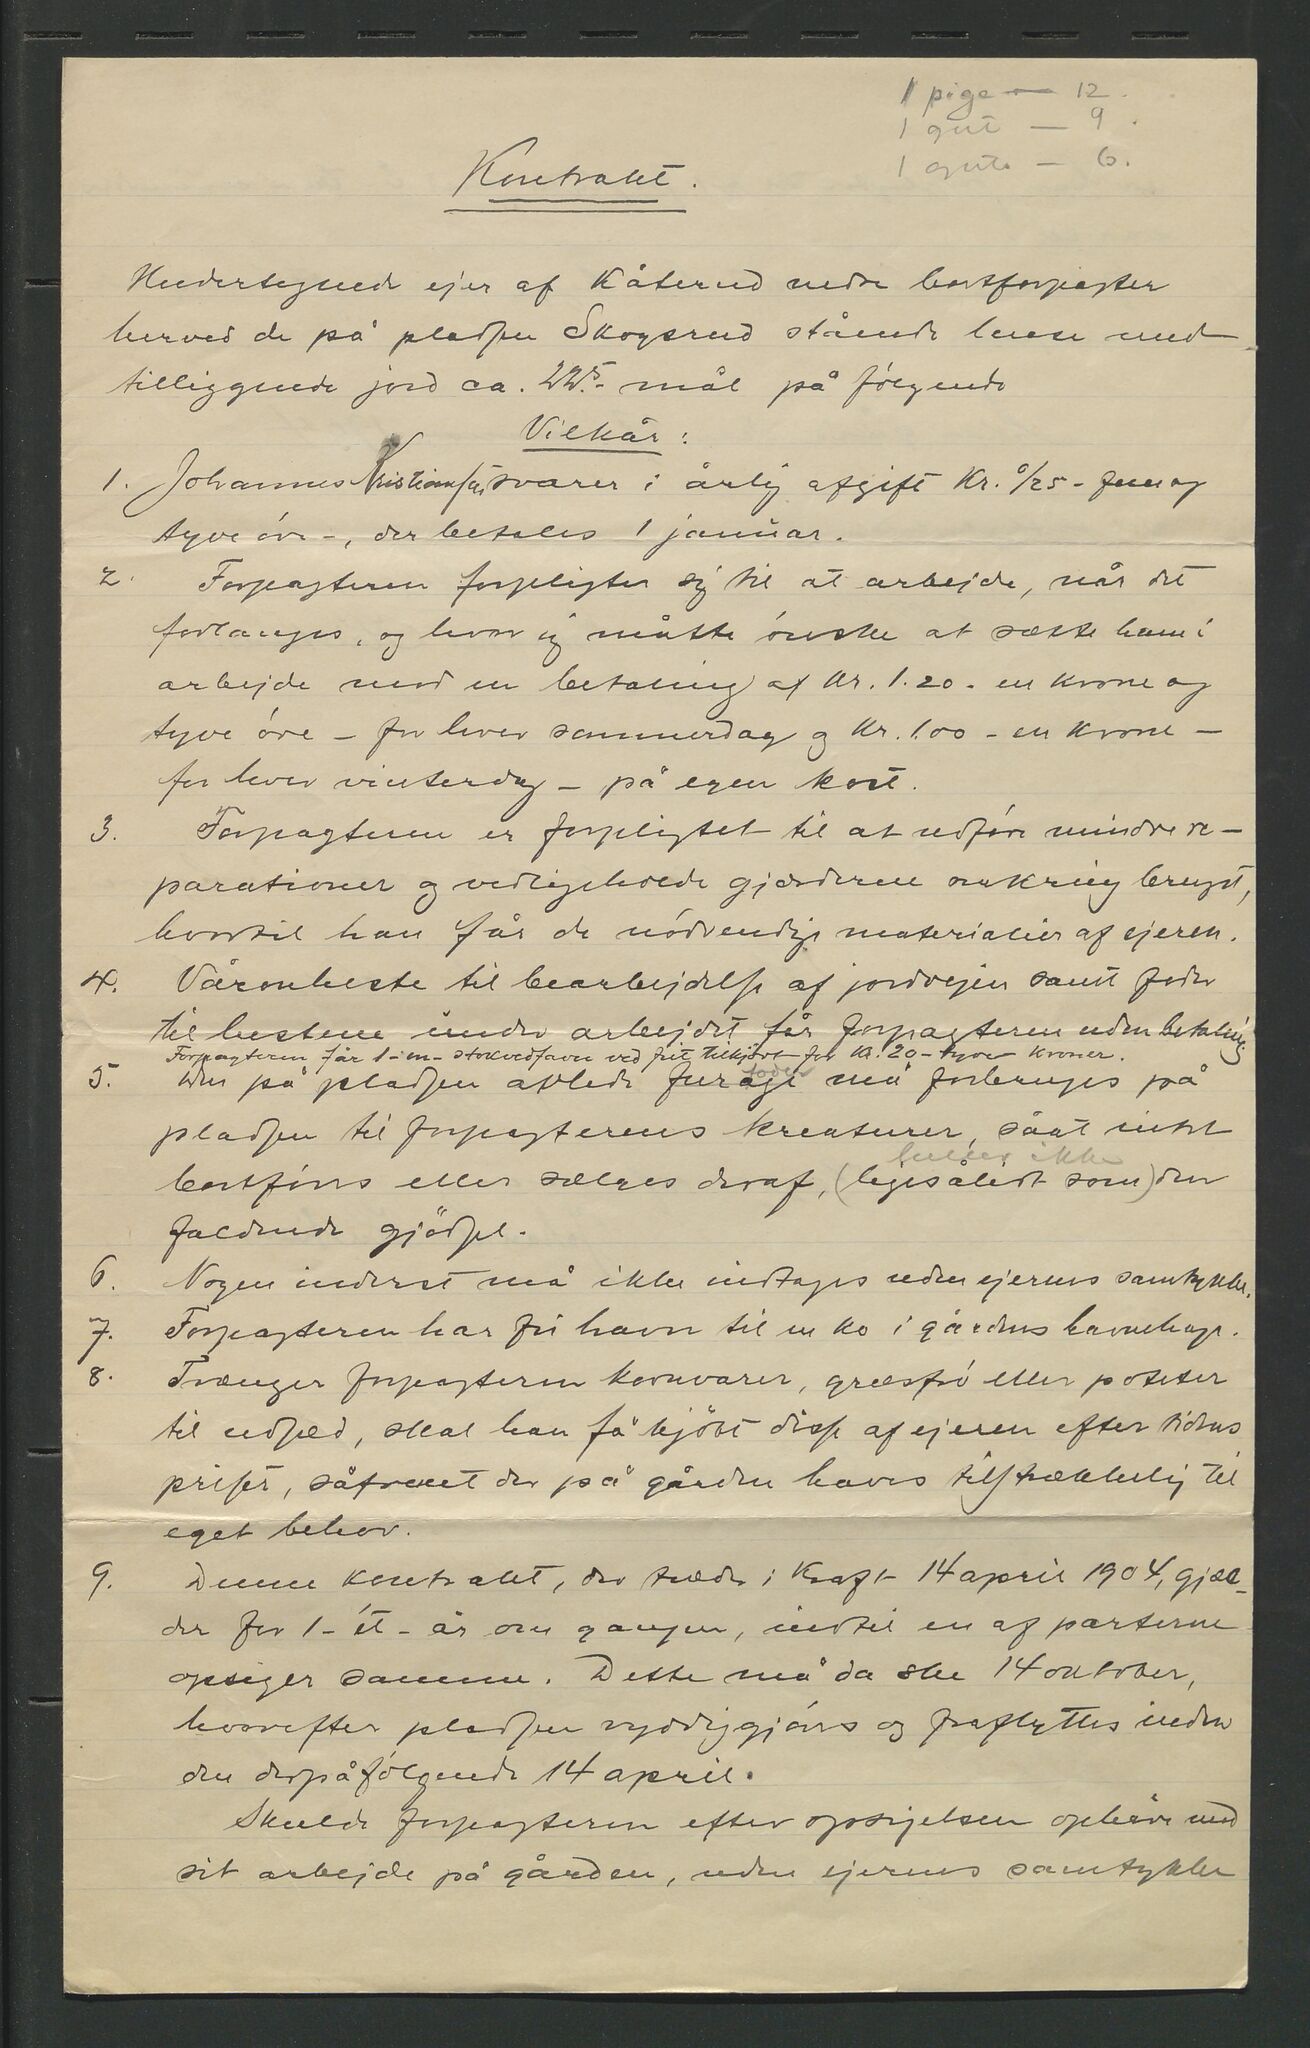 1 pige — 12.
1 gut — 9.
1 gut — 6.
Kontrakt.
Undertegnede ejer af Kåterud nedre bortforpagter
herved de på pladsen Skogsrud stående huse med
tilliggende jord ca. mål på følgende
Vilkår:
1. Johannes Kristiansen svarer i årlig afgift Kr. /25 - fem og
tyve øre -, der betales 1 januar.
2. Forpagteren forpligter sig til at arbejde, når det
forlanges, og hvor jeg måtte ønske at sætte ham i
arbejde mod en betaling af Kr. 1.20 - en krone og
tyve øre - for hver sommerdag og Kr. 1.00 - en krone -
for hver vinterdag - på egen kost.
3. Forpagteren er forpligtet til at udføre mindre re-
parationer og vedligeholde gjærderne omkring bruget,
hvortil han får de nødvendige materialier af ejeren.
4. Våronheste til bearbejdelse af jordvejen samt foder
til hestene under arbejdet får forpagteren uden betaling.
Forpagteren får 1-en- stokvedfavn ved frit tilkjørt for Kr. 20 - tyve kroner.
5. Den på pladsen avlede furage foder må forbruges på
pladsen til forpagterens kreaturer, såat intet
heller ikke
bortføres eller sælges deraf, (ligesålidt som) den
faldende gjødsel.
6. Nogen inderst må ikke indtages uden ejerens samtykke.
7. Forpagteren har fri havn til en ko i gårdens havnehage.
8. Trænger forpagteren kornvarer, græsfrø eller poteter
til udsæd, skal han få kjøbt disse af ejeren efter tidens
priser, såfremt der på gården haves tilstrækkelig til
eget behov.
9. Denne kontrakt, der træder i kraft 14 april 1904, gjæl-
der for 1 - ét - år om gangen, indtil en af parterne
opsiger samme. Dette må da ske 14 oktober,
hvorefter pladsen ryddiggjøres og fraflyttes inden
den derpåfølgende 14 april.
Skulde forpagteren efter opsigelsen ophøre med
sit arbejde på gården, uden ejerens samtykke